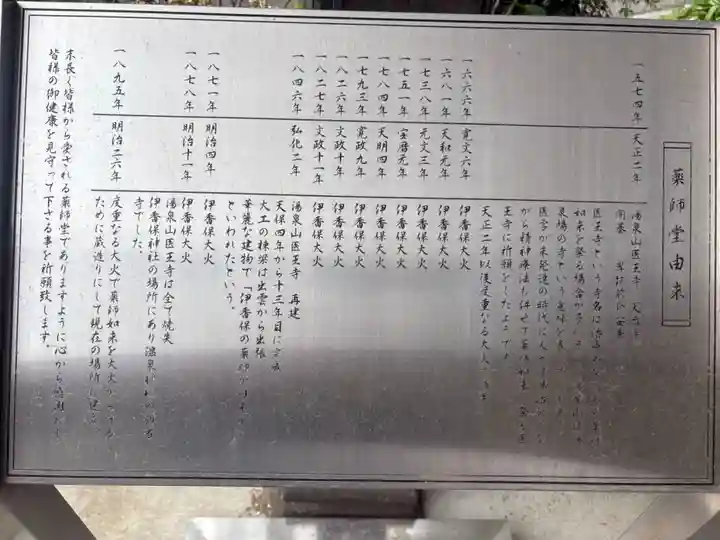 薬師堂由来
一五七四年 天正二年 湯泉山医王寺
開基
医王寺という寺名は
如来を祭る場合が
泉場の寺という意味を
医学が未発達の時代に
がら精神療法も併せて薬師如来
王寺に祈願をしたようです
天正二年以後度重なる大火
一六六六年 寛文六年 伊香保大火
一六八一年 天和元年 伊香保大火
一七三八年 元文三年 伊香保大火
一七五一年 宝暦元年 伊香保大火
一七八四年 天明四年 伊香保大火
一七九三年 寛政九年 伊香保大火
一八二六年 文政十年 伊香保大火
一八二七年 文政十一年 伊香保大火
一八四六年 弘化二年 湯泉山医王寺 再建
天保四年から十三年目に完成
大工の棟梁は出雲から出張
華麗な建物で「伊香保の薬師か
といわれたという。
一八七一年 明治四年 伊香保大火
一八七八年 明治十一年 伊香保大火
湯泉山医王寺は全て焼失
伊香保神社の場所にあり温泉
寺でした。
一八九五年 明治二六年 度重なる大火で薬師如来を大火から守る
ために蔵造りにして現在の場所に建立
末長く皆様から愛される薬師堂でありますように心から感謝し
皆様の御健康を見守って下さる事を祈願致します。